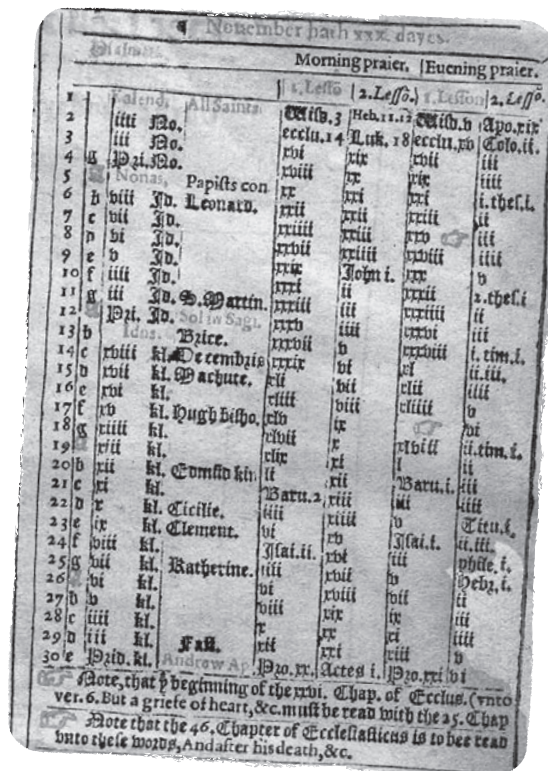 ¶ Nouember hath xxx. dayes.
Morning praier. Euening praier.
1.Lesso 2.Lesso. 1.Lesson 2.Lesso.
1 Kalend. All Saints Wisd.3 Heb.11.12 Wisd.v Apo.xix
2 iiii No. ecclu.14 Luk.18 ecclu.xv Colo.ii.
3 iii No. xvi xix xvii iii
4 g Pri.No. xviii xx xix iiii
5 Nonas, Papists con xx xxi xxi i.thes.i.
6 b viii Id. Leonard. xxii xxii xxiii ii
7 c vii Id. xxiiii xxiii xxv ☞ iii
8 d vi Id. xxvii xxiiii xxviii iiii
9 e v Id. xxix John i. xxx v
10 f iiii Id. xxxi ii xxxii 2.thes.i
11 g iii Id. S.Martin. xxxiii iii xxxiiii ii
12 Pri. Id. Sol in Sagi. xxxv iiii xxxvi iii
13 b Idus. Brice. xxxvii v xxxviii i.tim.i.
14 c xviii kl. Decembris xxxix vi xl ii.iii.
15 d xvii kl. Machute. xli vii xlii iiii
16 e xvi kl. xliii viii xliiii v
17 f xv kl. Hugh bisho. xlv ix ☞ vi
18 g xiiii kl. xlvii x xlviii ii.tim.i.
19 xiii kl. xlix xi l ii
20 b xii kl. Edmūd kin li xii Baru.i. iii
21 c xi kl. Baru.2 xiii iii iiii
22 d x kl. Cicilie. iiii xiiii v Titu.i.
23 e ix kl. Clement. vi xv Isai.i. ii.iii.
24 f viii kl. Isai.ii. xvi iii phile.i.
25 g vii kl. Katherine. iiii xvii v Hebr.i.
26 vi kl. vi xviii vii ii
27 b v kl. viii xix ix iii
28 c iiii kl. x xx xi iiii
29 d iii kl. Fast. xii xxi xiii v
30 e Prid. kl. Andrew Ap. Pro.xx. Actes i. Pro.xxi vi
☞ Note, that yͤ beginning of the xxvi. Chap. of Ecclus. (vnto
ver. 6. But a griefe of heart, &c. must be read with the 25. Chap
☞ Note that the 46. Chapter of Ecclesiasticus is to bee read
vnto these words, And after his death, &c.